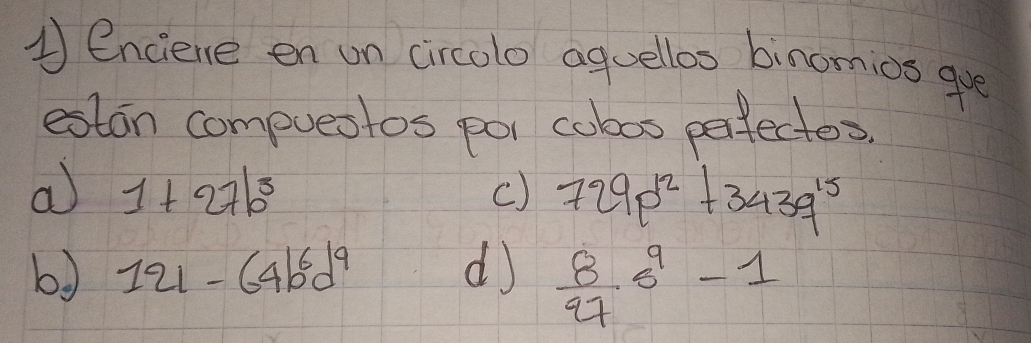 1) Encierre en un circolo aquellos binomios que
están compuestos por cobos perfectos.
a) 1 + 27b³ c) 729p² + 343q¹⁵
b) 121 - 64b⁶d⁹ d) 8/27 . s⁹ - 1